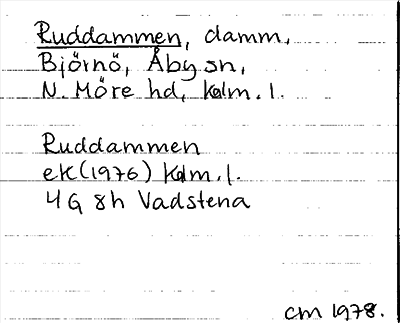 Ruddammen, damm.
Björnö, Åby sn,
N. Möre hd, Kalm. l.
Ruddammen
ek (1976) Kalm. l.
4 G 8h Vadstena
cm 1978.